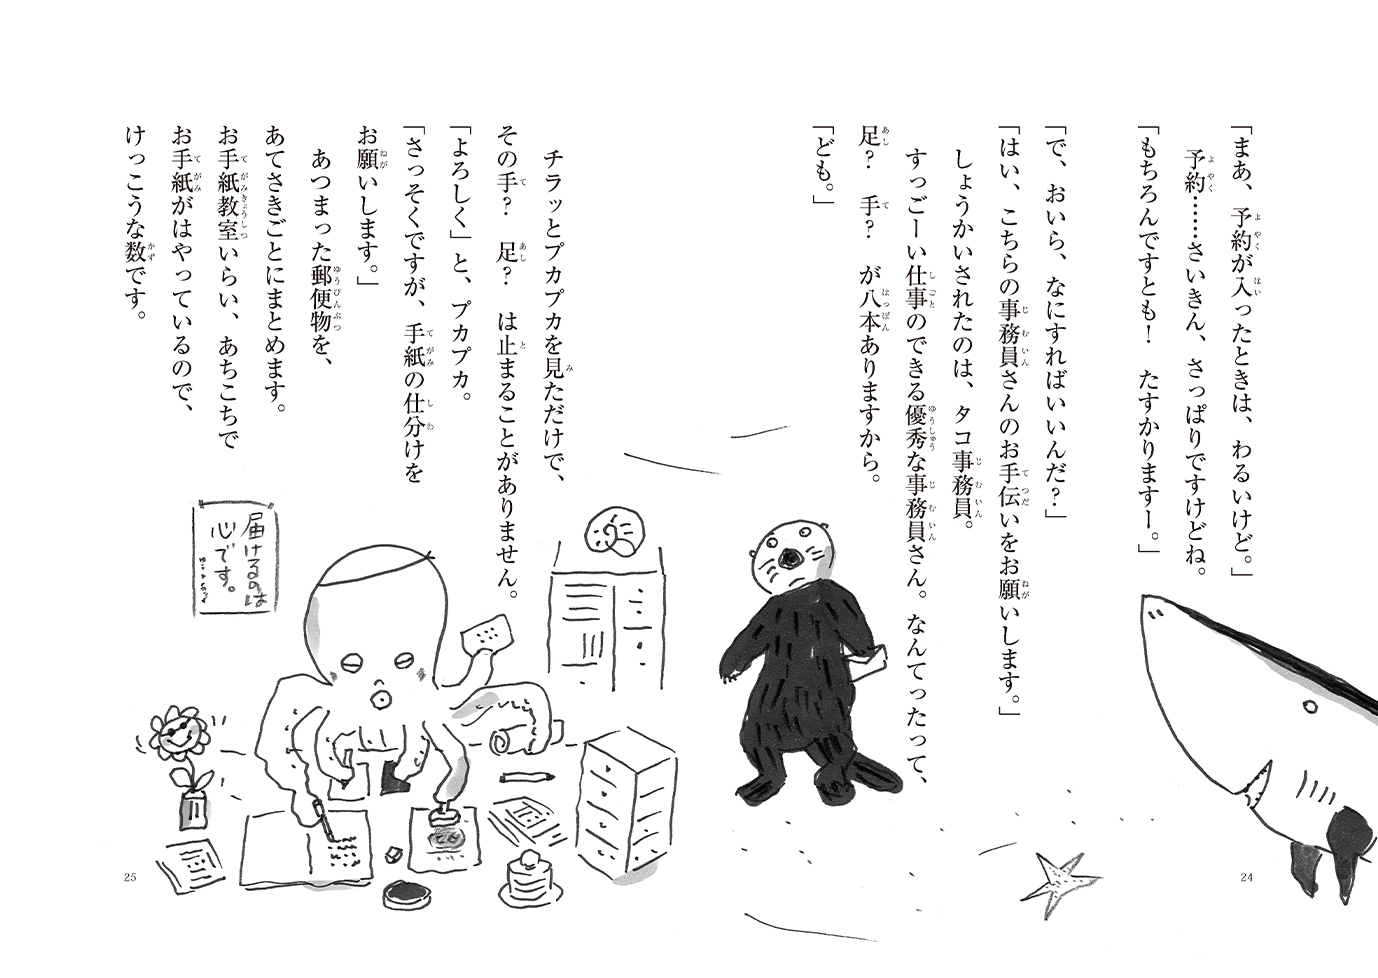 「まあ、予約が入ったときは、わるいけど。」
予約……さいきん、さっぱりですけどね。
「もちろんですとも！　たすかりますー。」
「で、おいら、なにすればいいんだ？」
「はい、こちらの事務員さんのお手伝いをお願いします。」
しょうかいされたのは、タコ事務員。
すっごーい仕事のできる優秀な事務員さん。なんてったって、
足？　手？　が八本ありますから。
「ども。」
24
チラッとプカプカを見ただけで、
その手？　足？　は止まることがありません。
「よろしく」と、プカプカ。
「さっそくですが、手紙の仕分けを
お願いします。」
あつまった郵便物を、
あてさきごとにまとめます。
お手紙教室いらい、あちこちで
お手紙がはやっているので、
けっこうな数です。
届けるのは
心です。
25